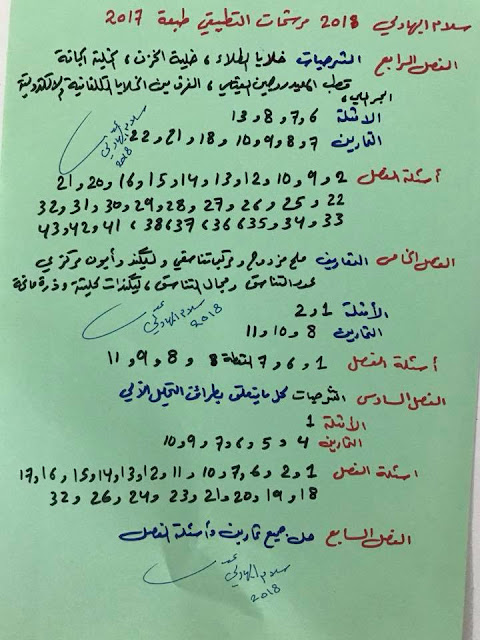 سلام الهادي 2018 مرشحات التطبيقي طبعة 2017
الفصل الرابع الشرحيات خلايا الطلاء، خلية الخزن، الخلية الجافة
قطب الهيدروجين القياسي، الفرق بين الخلايا الكلفانية والالكتروليتية
الجسر الملحي،
الامثلة 6 و 7 و 8 و 13
التمارين 7 و 8 و 9 و 10 و 18 و 21 و 22
سلام الهادي
2018
أسئلة الفصل 2 و 9 و 10 و 12 و 13 و 14 و 15 و 16 و 20 و 21
22 و 25 و 26 و 27 و 28 و 29 و 30 و 31 و 32
33 و 34 و 35 و 36 و 37 و 38 و 41 و 42 و 43
الفصل الخامس التعاريف ملح مزدوج و مركب تناسقي و ليكند و أيون مركزي
عدد التناسق و مجال التناسق، ليكندات كليتية و ذرة مانحة
الأمثلة 1 و 2
التمارين 8 و 10 و 11
سلام الهادي
2018
أسئلة الفصل 1 و 6 و 7 النقطة 8 و 8 و 9 و 11
الفصل السادس الشرحيات كل ما يتعلق بطرائق التحليل الوزني
الامثلة 1
التمارين 4 و 5 و 6 و 7 و 9 و 10
اسئلة الفصل 1 و 2 و 6 و 7 و 10 و 11 و 12 و 13 و 14 و 15 و 16 و 17
18 و 19 و 20 و 21 و 23 و 24 و 26 و 32
الفصل السابع حل جميع تمارين و أسئلة الفصل
سلام الهادي
2018